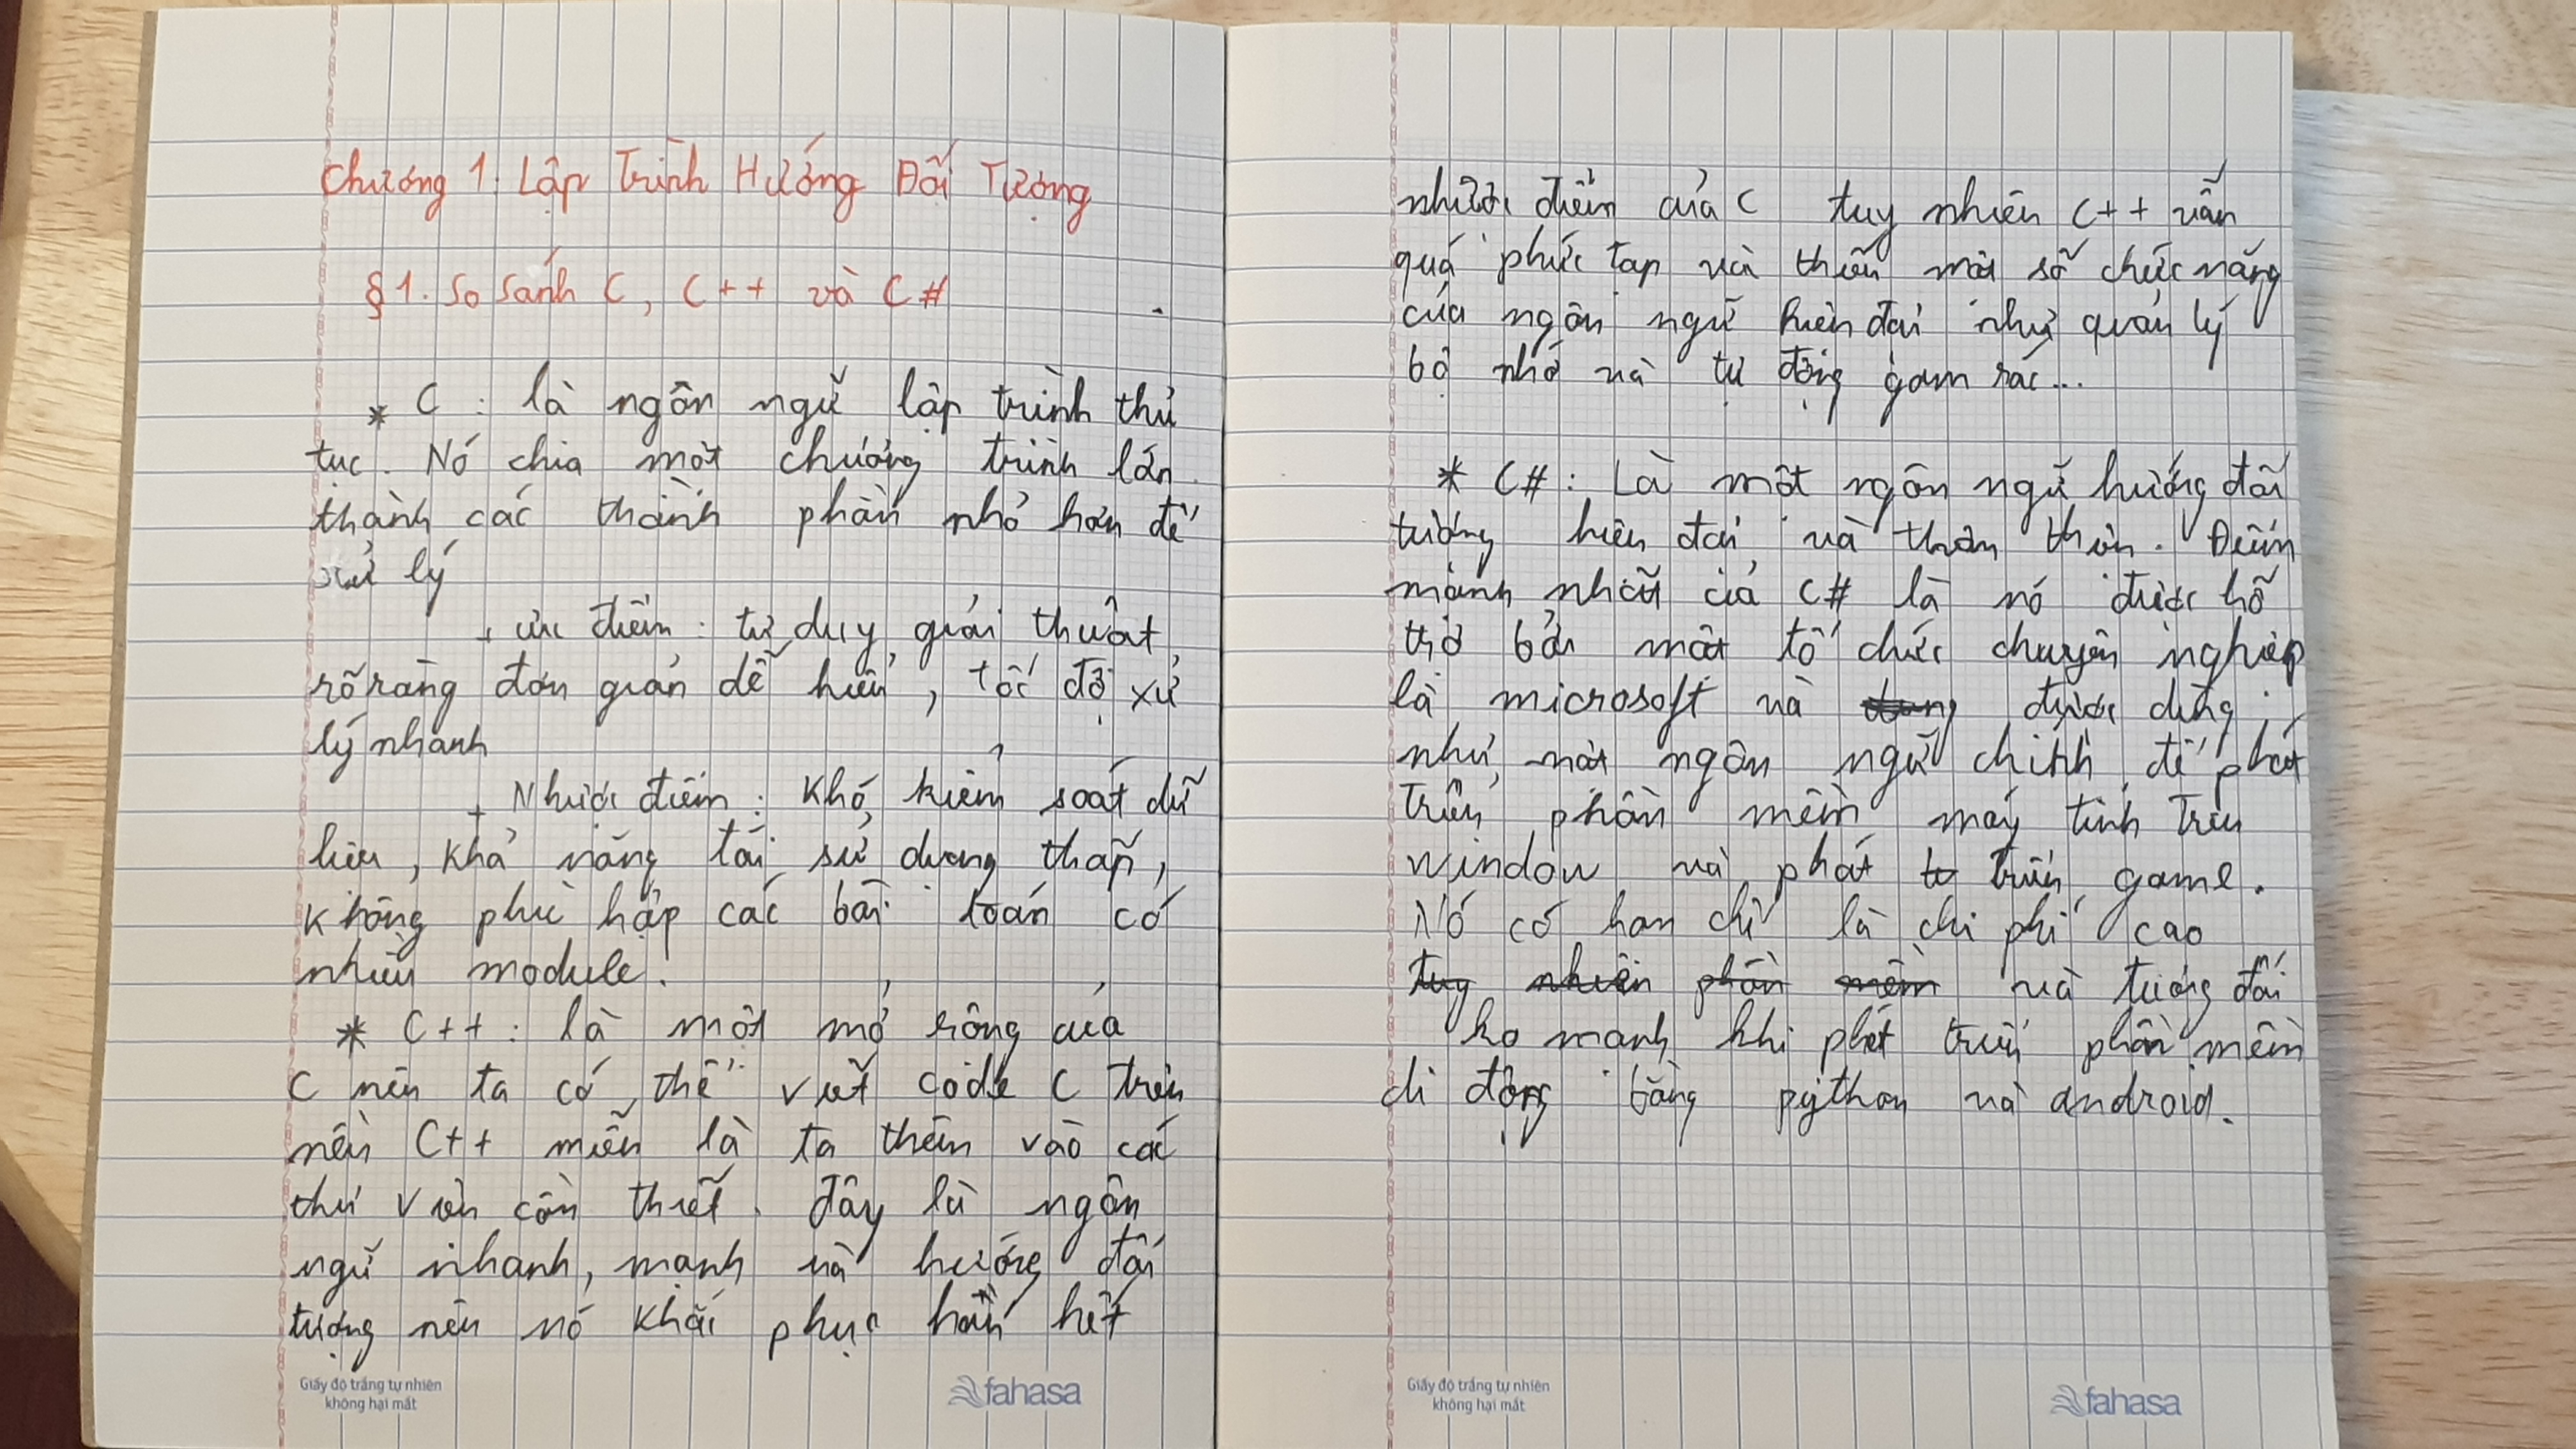 Chương 1. Lập Trình Hướng Đối Tượng
§1. So sánh C, C++ và C#
* C : là ngôn ngữ lập trình thủ
tục. Nó chia một chương trình lớn
thành các thành phần nhỏ hơn để
xử lý
+ ưu điểm : tư duy giải thuật
rõ ràng đơn giản dễ hiểu, tốc độ xử
lý nhanh
+ Nhược điểm : Khó kiểm soát dữ
liệu, khả năng tái sử dụng thấp,
không phù hợp các bài toán có
nhiều module.
* C++ : là một mở rộng của
C nên ta có thể viết code C trên
nền C++ miễn là ta thêm vào các
thư viện cần thiết. Đây là ngôn
ngữ nhanh, mạnh và hướng đối
tượng nên nó khắc phục hầu hết
Giấy độ trắng tự nhiên
không hại mắt
fahasa
nhược điểm của C tuy nhiên C++ vẫn
quá phức tạp và thiếu một số chức năng
của ngôn ngữ hiện đại như quản lý
bộ nhớ và tự động gom rác...
* C# : Là một ngôn ngữ hướng đối
tượng hiện đại và thân thiện. Điểm
mạnh nhất của C# là nó được hỗ
trợ bởi một tổ chức chuyên nghiệp
là microsoft và dung được dùng
như một ngôn ngữ chính để phát
triển phần mềm máy tính trên
window và phát tr triển game.
Nó có hạn chế là chi phí cao
tuy nhiên phần mềm và tương đối
ko mạnh khi phát triển phần mềm
di động bằng python và android.
Giấy độ trắng tự nhiên
không hại mắt
fahasa